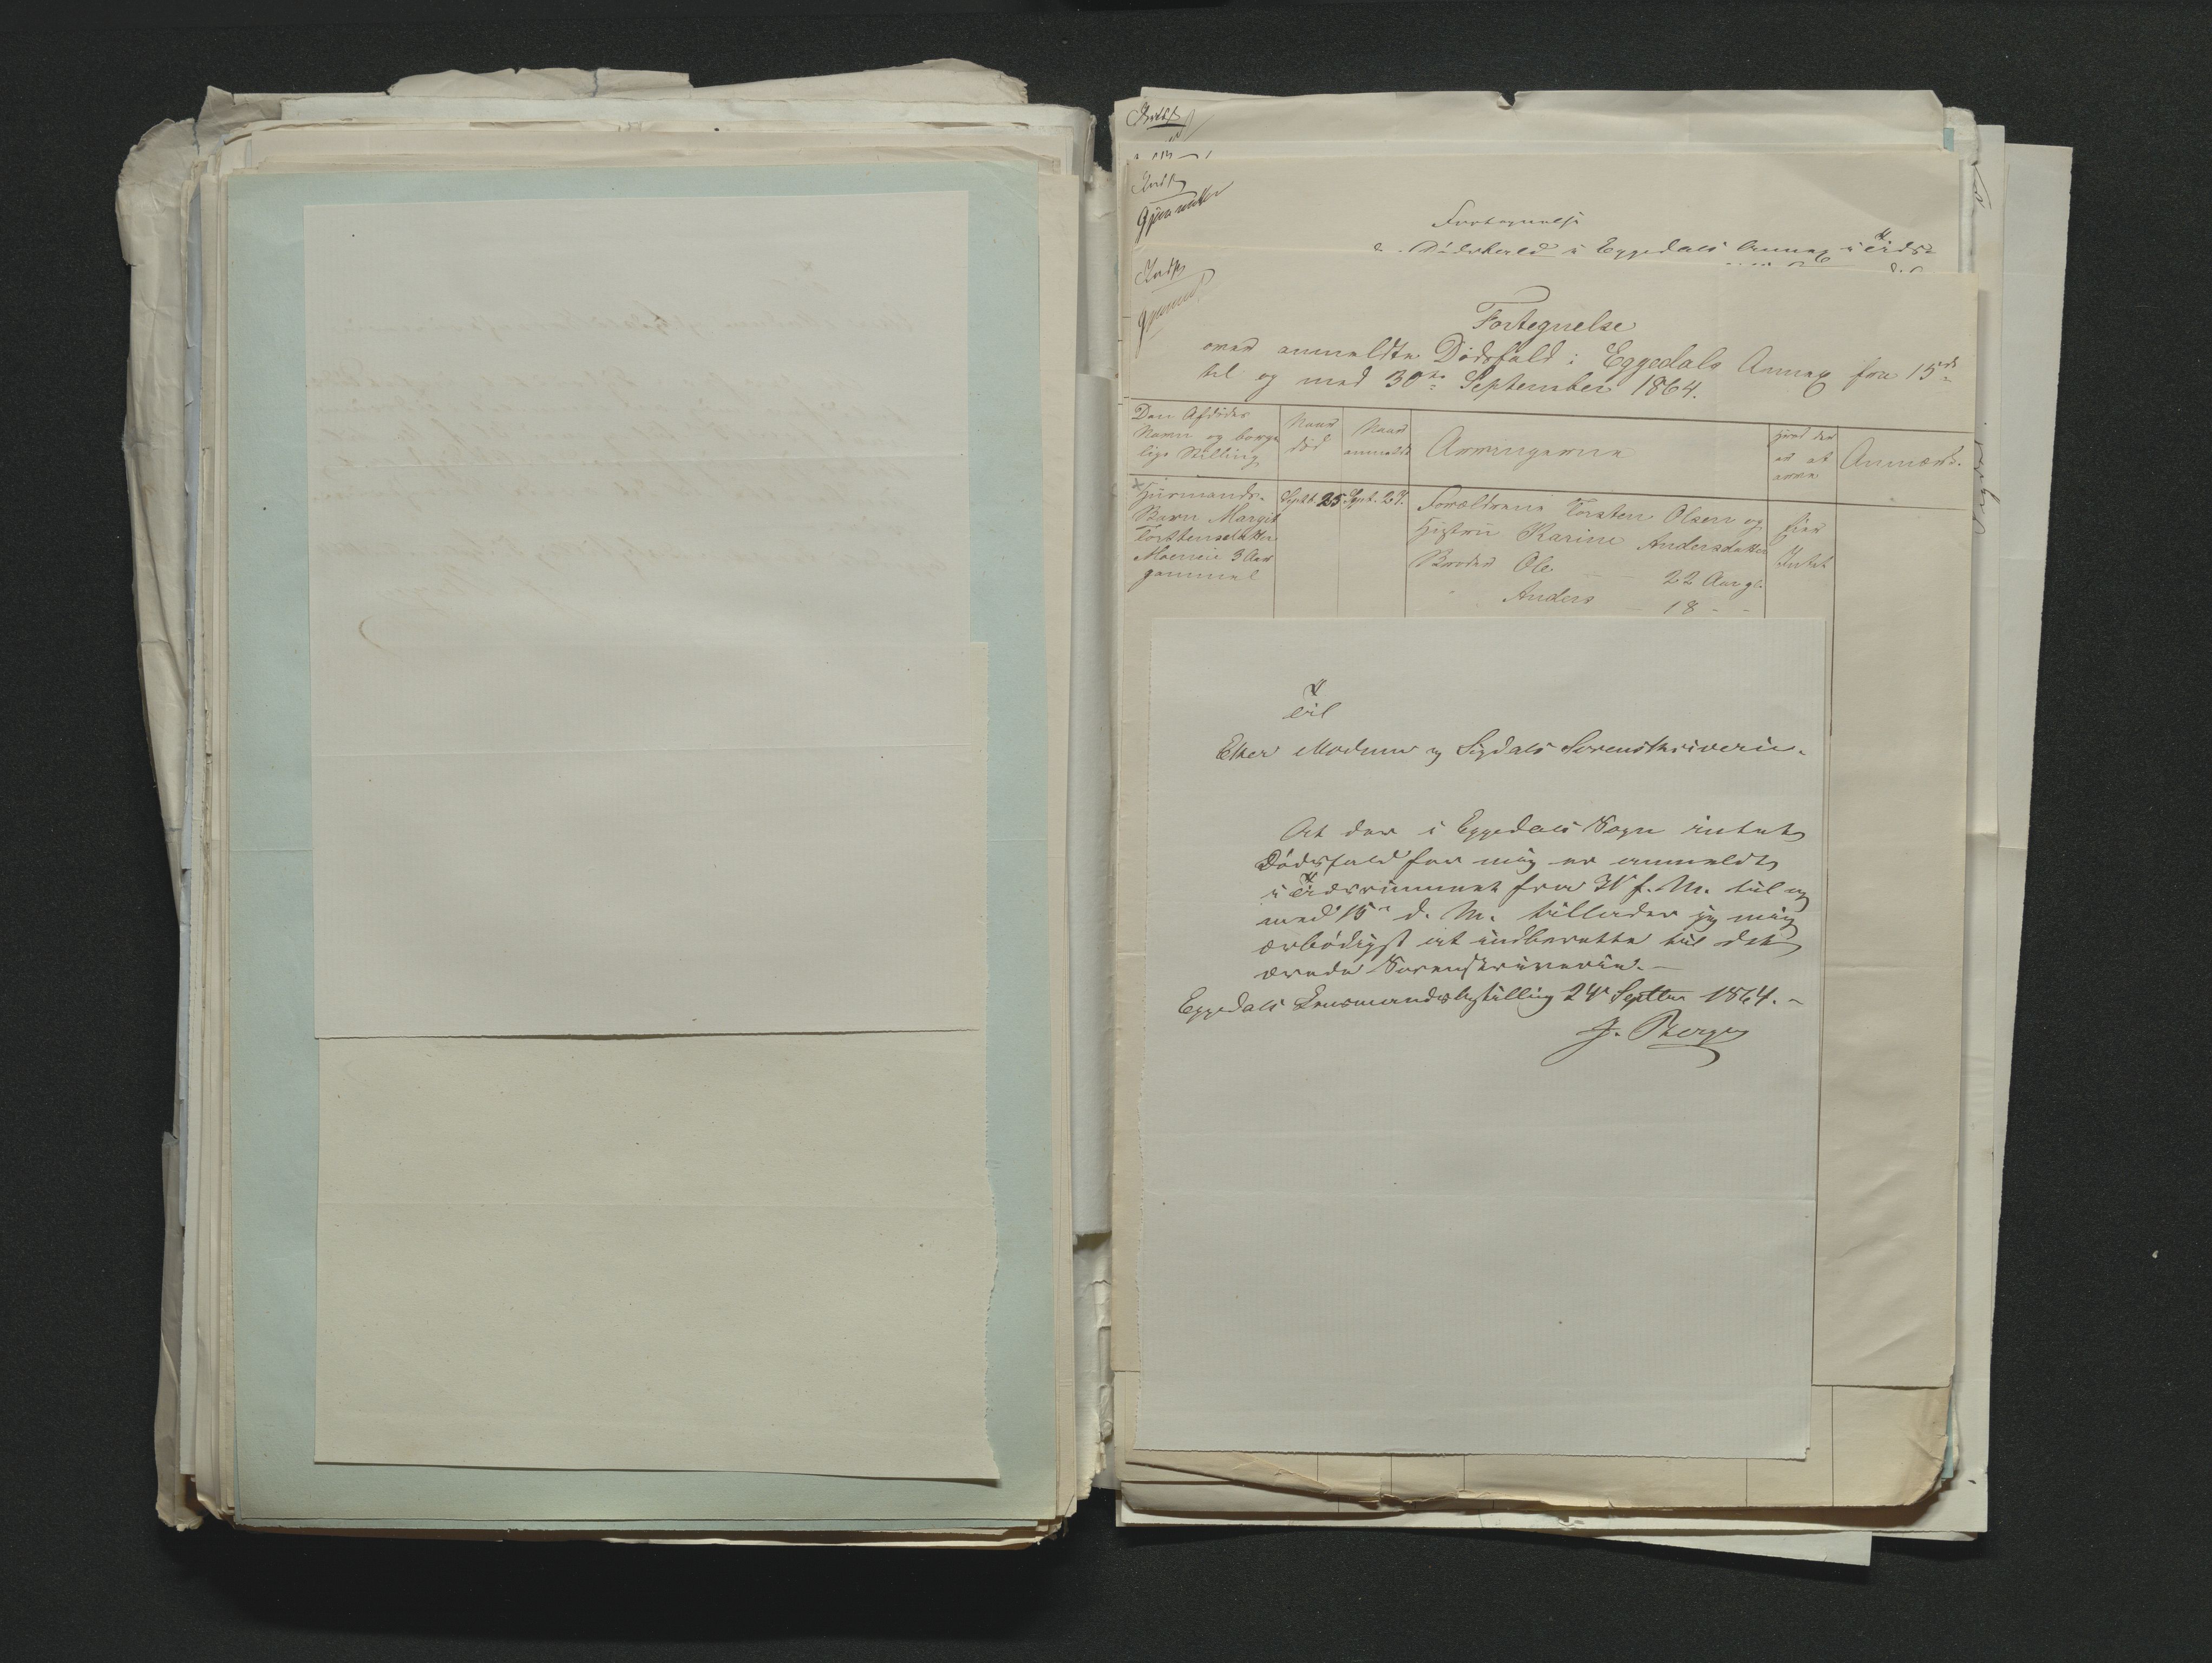 Indf
Indf
Gjennemseet
Fortegnelse
Dødsfald i Eggedals Annex i Tids-
Indf
Fortegnelse
over anmeldte Dødsfald i Eggedals Annex fra 15de
til og med 30te September 1864.
Den Afdødes
Navn og borger
lige Stilling
Naar
død
Naar
anmeldt
Arvingerne
Hvad der
er at
arve
Anmærk.
Huusmands-
Barn Margit
Torstensdatter
Moeneie 3 Aar
gammel
Septb. 25
Sept. 27.
Forældrene Torsten Olsen og
Hustru Karine Andersdatter
Broder Ole — 22 Aar gl.
" Anders — 18 - -
Eier
Intet
Til
Eker Modum og Sigdals Sorenskriverie.
At der i Eggedals Sogn intet
Dødsfald for mig er anmeldt
i Tidsrummet fra 31 f. M. til og
med 15de d. M. tillader jeg mig
ærbødigst at indberette til det
ærede Sorenskriverie.—
Eggedals Lensmandsbestilling 24 Septbr 1864.-
J. Berge